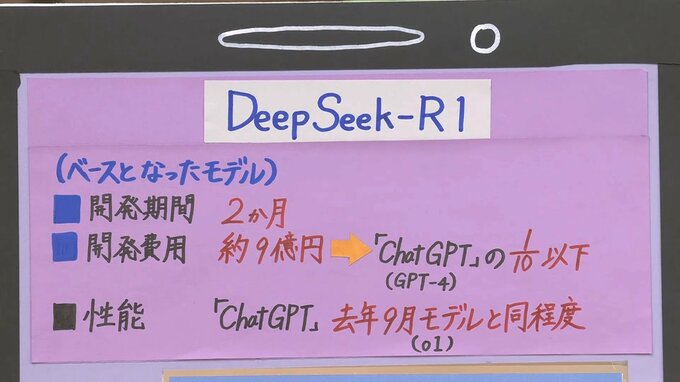 DeepSeek-R1
(ベースとなったモデル)
■開発期間 2か月
■開発費用 約9億円➡「ChatGPT」の1/10以下
(GPT-4)
■性能 「ChatGPT」去年9月モデルと同程度
(o1)